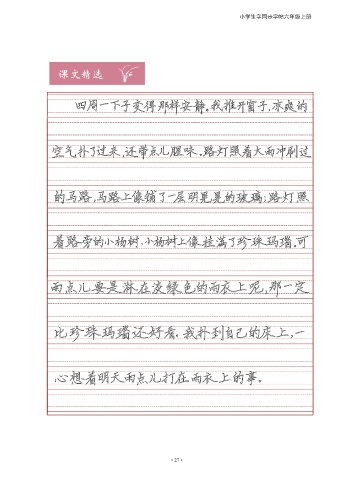 小学生字同步字帖六年级上册
课文精选
四周一下子变得那样安静。我推开窗子,凉爽的
空气扑了过来,还带点儿腥味。路灯照着大雨冲刷过
的马路,马路上像铺了一层明晃晃的玻璃;路灯照
着路旁的小杨树,小杨树上像挂满了珍珠玛瑙。可
雨点儿要是淋在淡绿色的雨衣上呢,那一定
比珍珠玛瑙还好看。我扑到自己的床上,一
心想着明天雨点儿打在雨衣上的事。
·27·